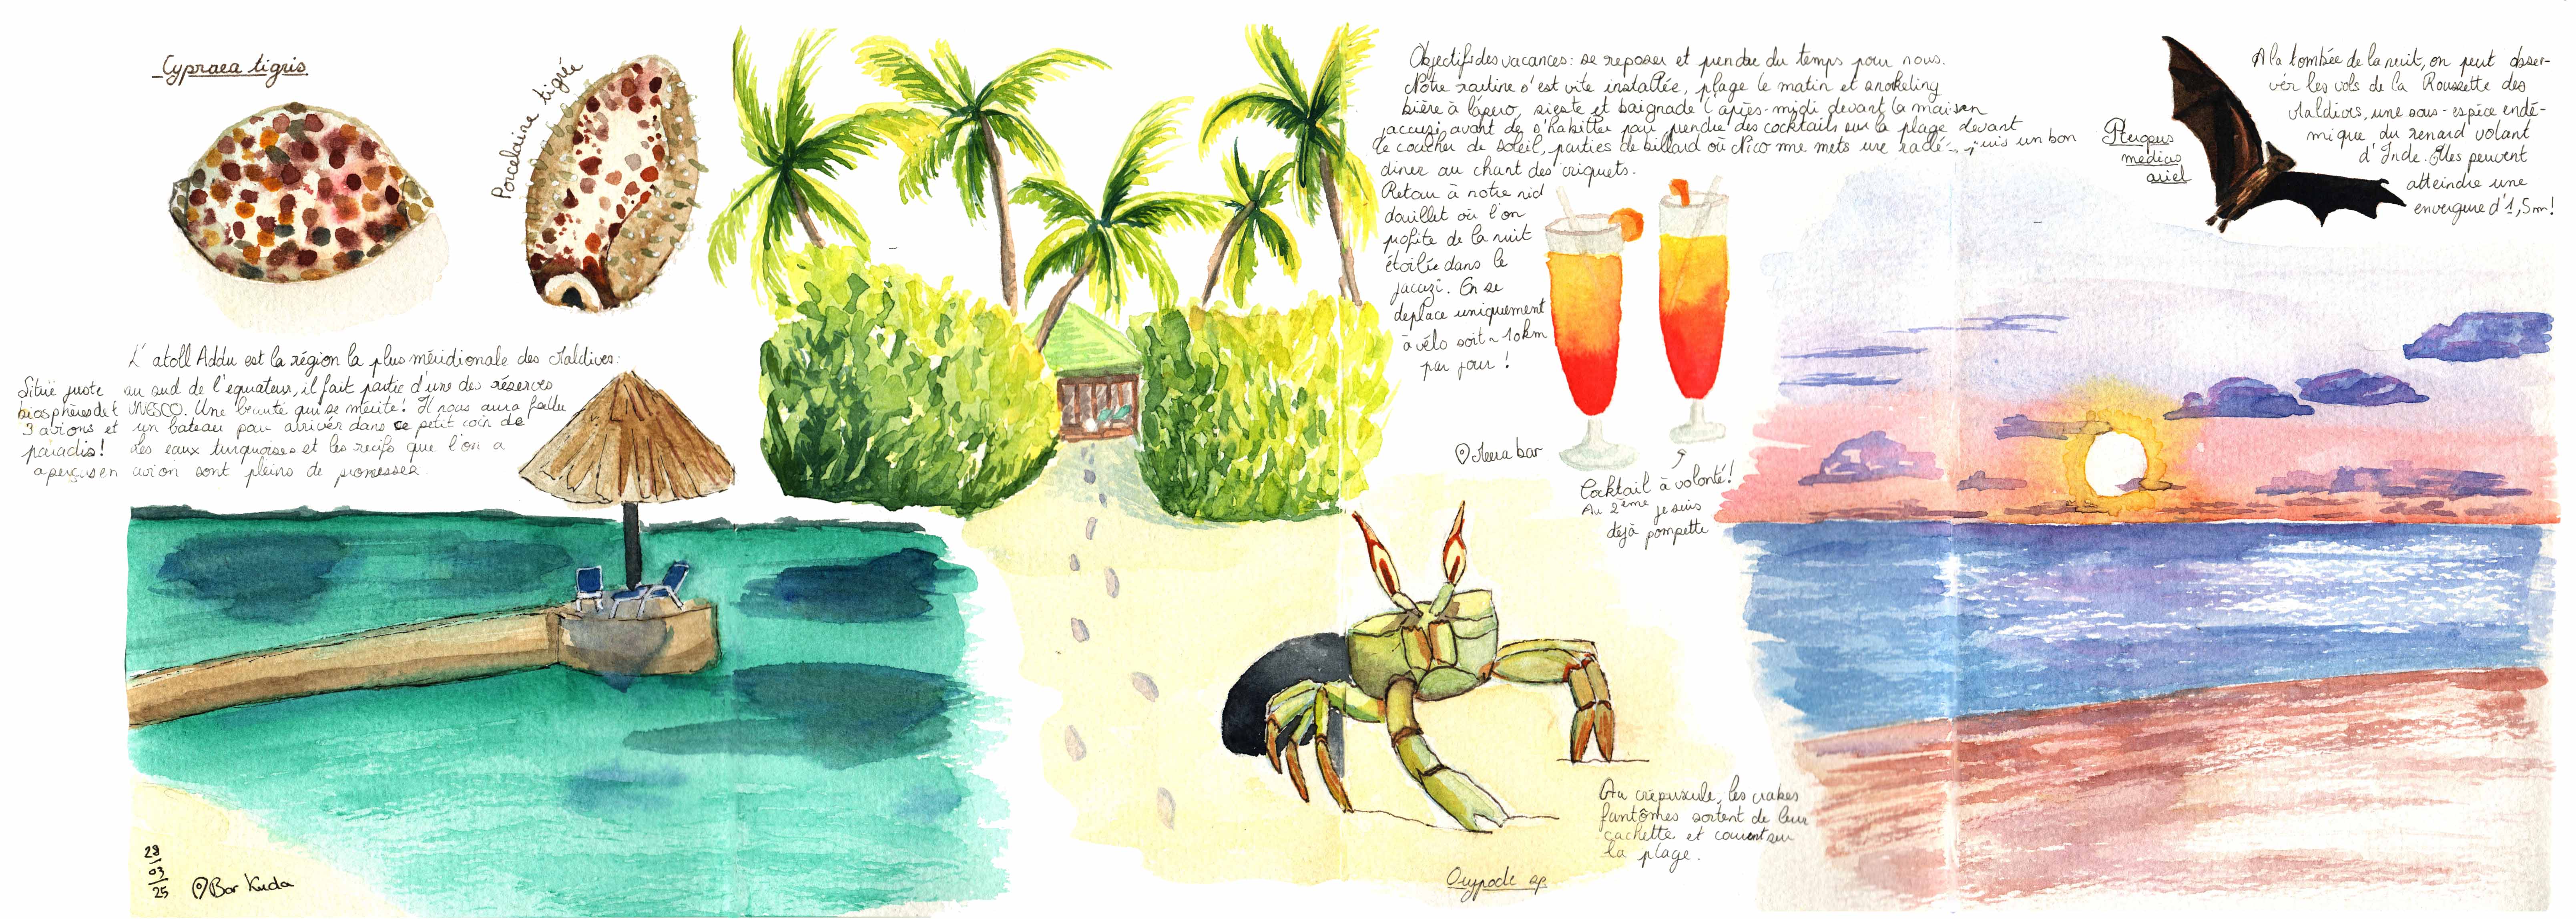 Cypraea tigris
Porcelaine tigrée
L'atoll Addu est la région la plus méridionale des Maldives:
Situé juste au sud de l'equateur, il fait partie d'une des réserves
biosphères de l'UNESCO. Une beauté qui se mérite! Il nous aura fallu
3 avions et un bateau pour arriver dans ce petit coin de
paradis! Les eaux turquoises et les recifs que l'on a
aperçus en avion sont pleins de promesses.
28
03
25
Bar Kuda
Objectif des vacances: se reposer et prendre du temps pour nous.
Notre routine s'est vite installée, plage le matin et snorkeling
bière à l'apéro, sieste et baignade l'après-midi devant la maison
jaccuzi avant de s'habiller pour prendre des cocktails sur la plage devant
le coucher de soleil, parties de billard où Nico me mets une raclé, puis un bon
diner au chant des criquets.
Retour à notre nid
douillet où l'on
profite de la nuit
étoilée dans le
jacuzi. On se
deplace uniquement
à vélo soit ~ 10km
par jour!
Meera bar
Cocktail à volonté!
Au 2ème je suis
déjà pompette
Au crépuscule, les crabes
fantômes sortent de leur
cachette et courent sur
la plage.
Ocypode sp.
Pteropus
medius
ariel
A la tombée de la nuit, on peut obser-
ver les vols de la Roussette des
Maldives, une sous-espèce endé-
mique du renard volant
d'Inde. Elles peuvent
atteindre une
envergure d'1,5m!